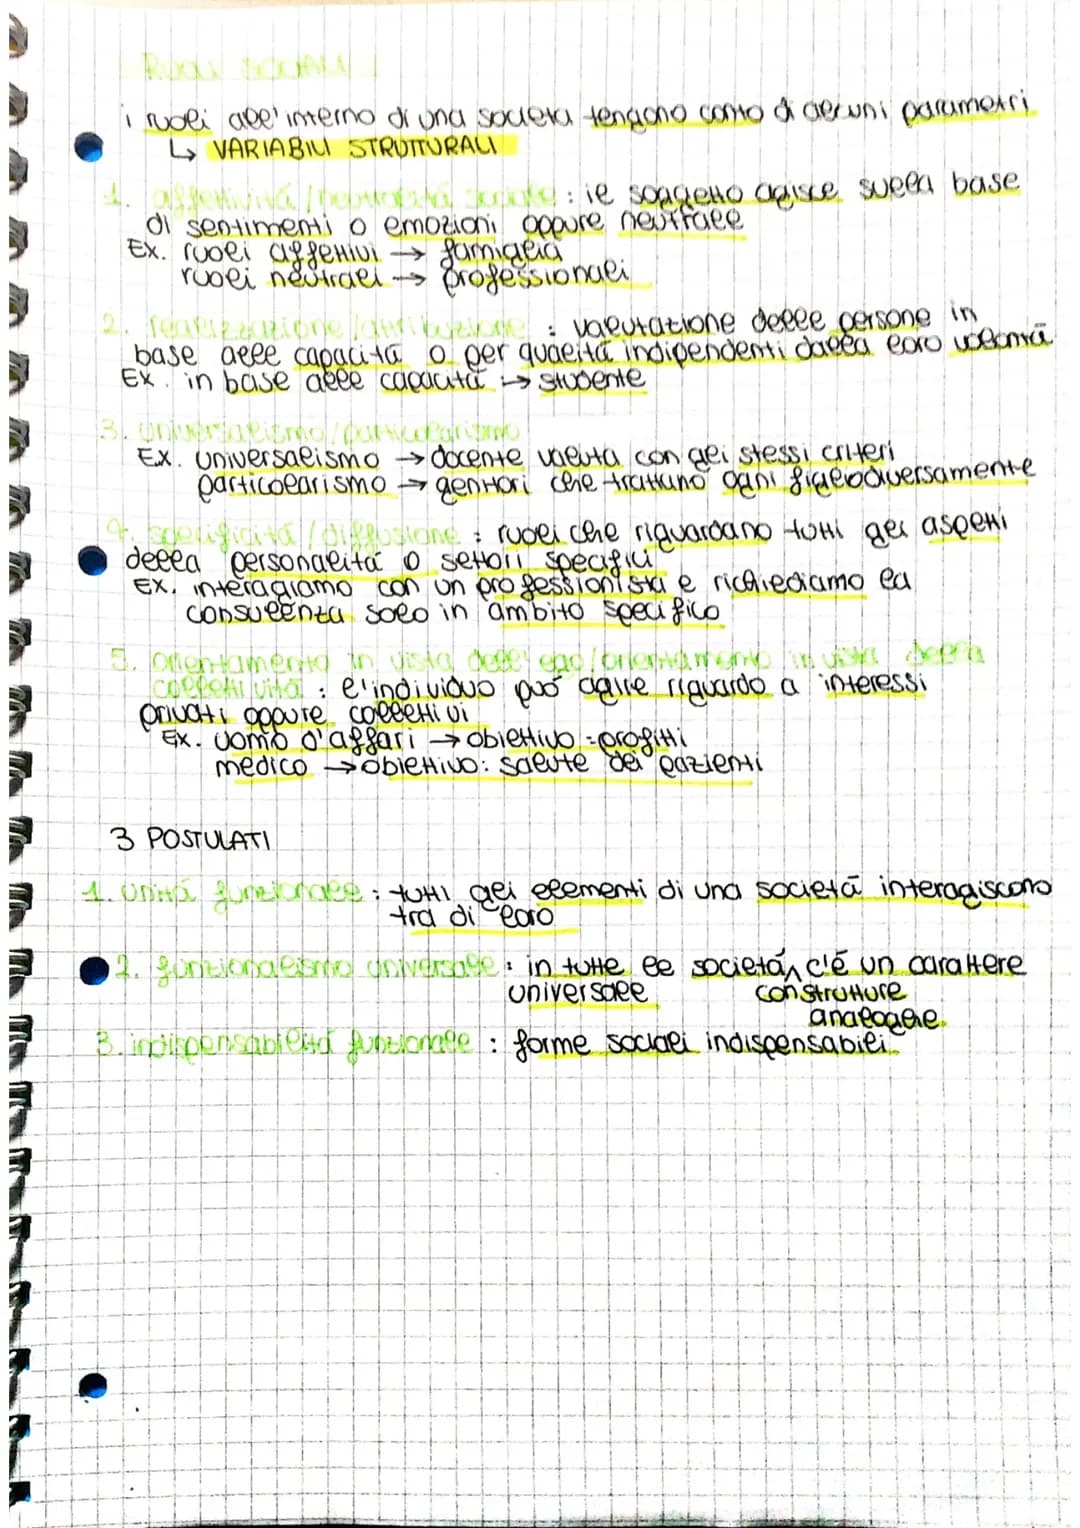 RUOLI SOCIALI
i ruoli all'interno di una società tengono conto di alcuni parametri
↳ VARIABILI STRUTTURALI
1. affettività/neutralità sociale: il soggetto agisce sulla base
di sentimenti o emozioni oppure neutrale
Ex. ruoli affettivi → famiglia
ruoli neutrali → professionali
2. realizzazione/attribuzione: valutazione delle persone in
base alle capacità o per qualità indipendenti dalla loro volontà
Ex. in base alle capacità → studente
3. universalismo/particolarismo
Ex. universalismo → docente valuta con gli stessi criteri
particolarismo → genitori che trattano ogni figlio diversamente
4. specificità/diffusione: ruoli che riguardano tutti gli aspetti
della personalità o settori specifici
Ex. interagiamo con un professionista e richiediamo la
consulenza solo in ambito specifico
5. orientamento in vista dell'ego/orientamento in vista della
collettività: l'individuo può agire riguardo a interessi
privati oppure collettivi
Ex. uomo d'affari → obiettivo: profitti
medico → obiettivo: salute dei pazienti
3 POSTULATI
1. unità funzionale: tutti gli elementi di una società interagiscono
tra di loro
2. funzionalismo universale: in tutte le società, c'è un carattere
universale con strutture
analoghe
3. indispensabilità funzionale: forme sociali indispensabili